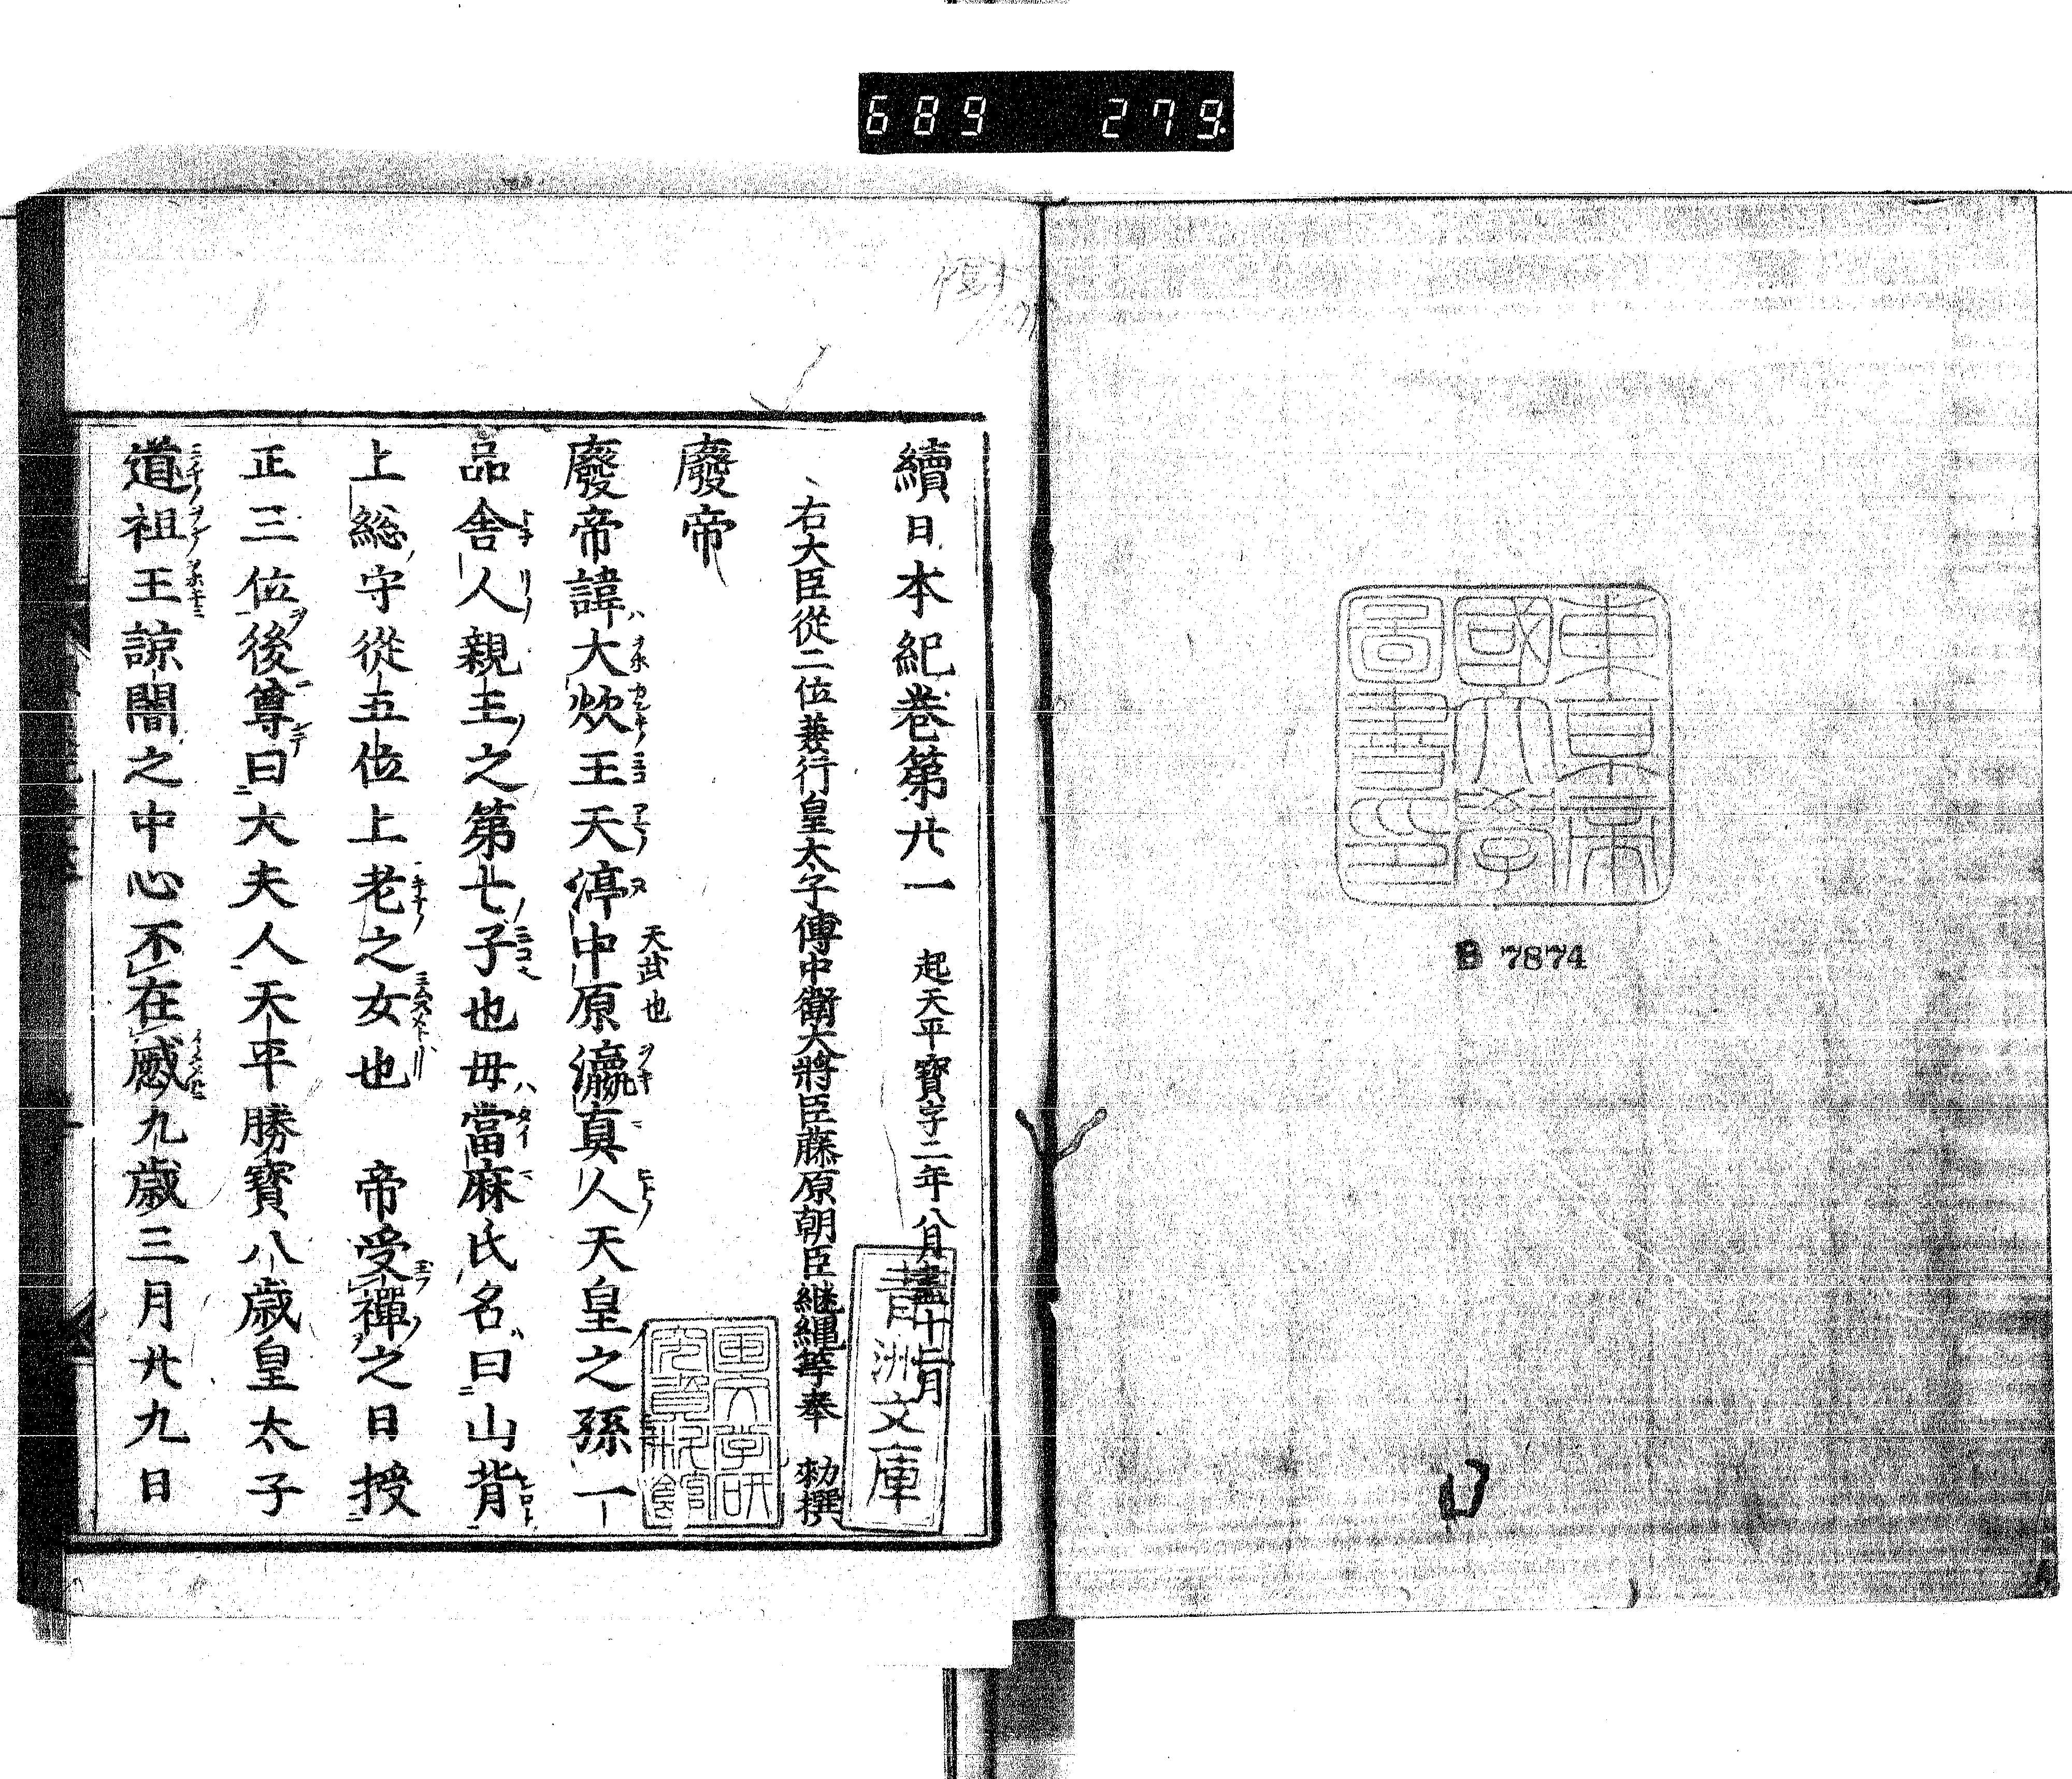 689 279
東京帝
國大學
圖書印
B 7874
續日本紀巻第廿一 起天平寶字二年八月盡十二月
右大臣從二位兼行皇太子傅中衛大將臣藤原朝臣継縄等奉 勅撰
青洲文庫
廢帝
廢帝諱大炊王天渟中原瀛真人天皇之孫一
天武也
品舎人親王之第七子也母當麻氏名曰山背
上総守從五位上老之女也 帝受禪之日授
正三位後尊曰大夫人天平勝寶八歳皇太子
道祖王諒闇之中心不在慼九歳三月廿九日